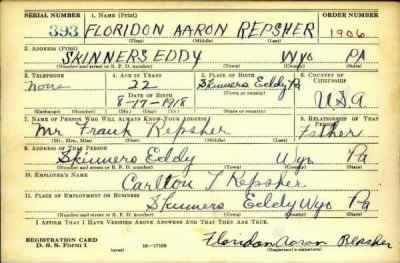 SERIAL NUMBER 1. NAME (Print) ORDER NUMBER
393 FLORIDON AARON REPSHER 1906
(First) (Middle) (Last)
2. ADDRESS (Print)
SKINNERS EDDY WYO PA
(Number and street or R. F. D. number) (Town) (County) (State)
3. TELEPHONE 4. AGE IN YEARS 5. PLACE OF BIRTH 6. COUNTRY OF CITIZENSHIP
None 22 Skinners Eddy Pa
DATE OF BIRTH (Town or county)
8-17-1918 USA
(Exchange) (Number) (Mo.) (Day) (Yr.) (State or country)
7. NAME OF PERSON WHO WILL ALWAYS KNOW YOUR ADDRESS 8. RELATIONSHIP OF THAT PERSON
Mr Frank Repsher Father
(Mr., Mrs., Miss) (First) (Middle) (Last)
9. ADDRESS OF THAT PERSON
Skinners Eddy Wyo Pa
(Number and street or R. F. D. number) (Town) (County) (State)
10. EMPLOYER'S NAME
Carlton T Repsher
11. PLACE OF EMPLOYMENT OR BUSINESS
Skinners Eddy Wyo Pa
(Number and street or R. F. D. number) (Town) (County) (State)
I AFFIRM THAT I HAVE VERIFIED ABOVE ANSWERS AND THAT THEY ARE TRUE.
REGISTRATION CARD
D. S. S. Form 1 (over) Floridon Aaron Repsher
(Registrant's signature)